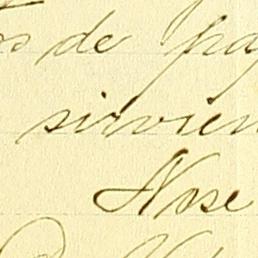 os de pa
sirvien
Nose